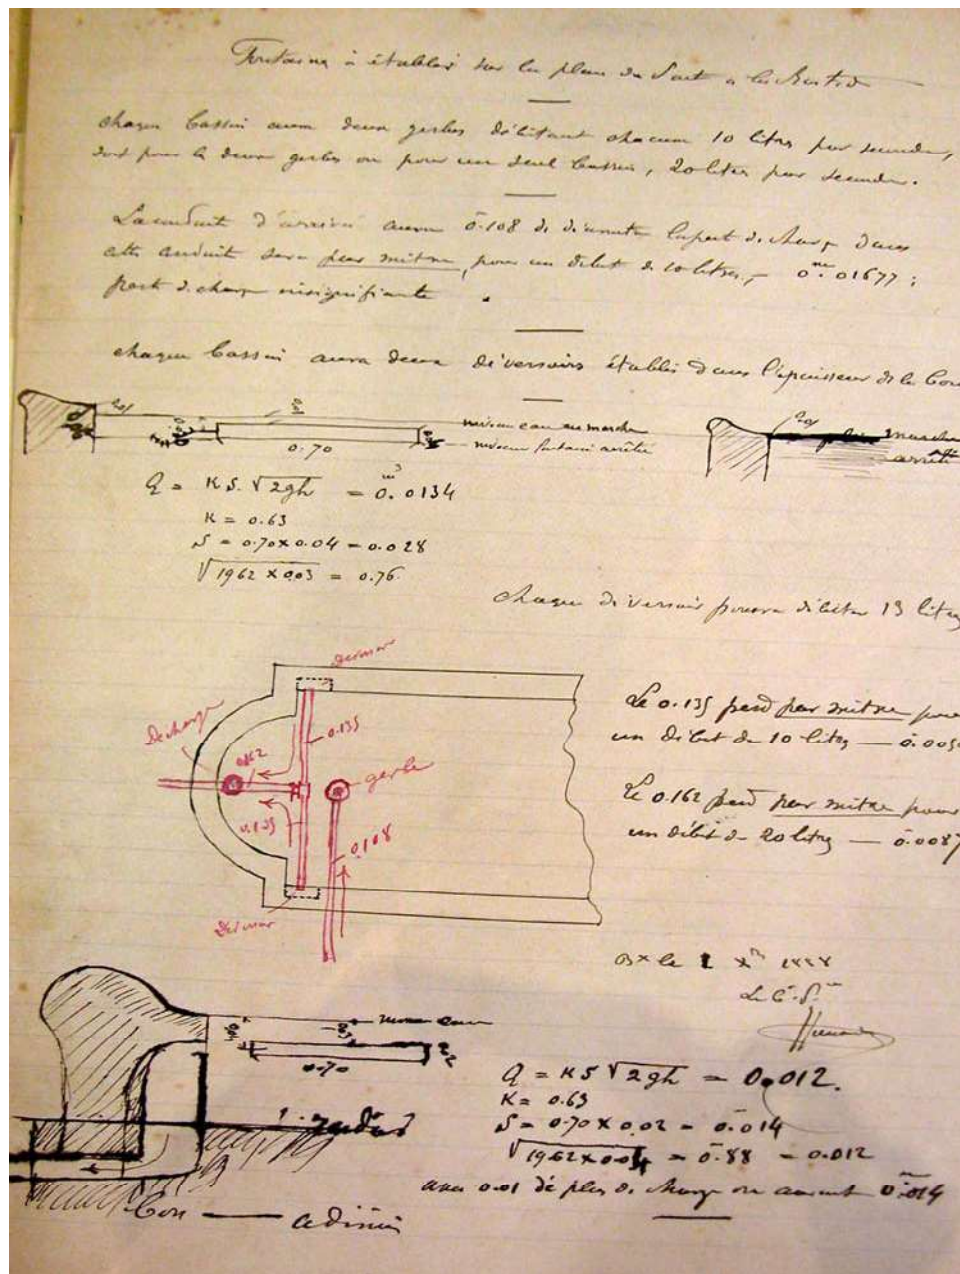 Fontaine à établir sur la place du Pont à la Bastide
chaque bassin aura deux gerbes débitant chacune 10 litres par seconde,
soit pour les deux gerbes ou pour un seul bassin, 20 litres par seconde.
La conduite d'arrivée aura 0.108 de diamètre la perte de charge dans
cette conduite sera par mètre, pour un débit de 10 litres, — 0.m01677;
perte de charge insignifiante.
chaque bassin aura deux déversoirs établis dans l'épaisseur de la
niveau eau en marche
niveau fontaine arrêtée
0.70
marche
Q = K S. √2gh = 0.m3 0134
K = 0.63
S = 0.70 x 0.04 = 0.028
√1962 x 0.03 = 0.76
chaque déversoir pourra débiter 13 litres
Déversoir
Décharge
0.162
0.135
gerbe
0.135
0.108
Déversoir
Le 0.135 perd par mètre pour
un débit de 10 litres — 0.005
Le 0.162 perd par mètre pour
un débit de 20 litres — 0.0087
Bx le
niveau eau
0.70
Q = K S √2gh = 0.012.
K = 0.63
S = 0.70 x 0.02 = 0.014
√1962 x 0.04 = 0.88 = 0.012
avec 0.01 de plus de charge on aurait 0.m014
Bon